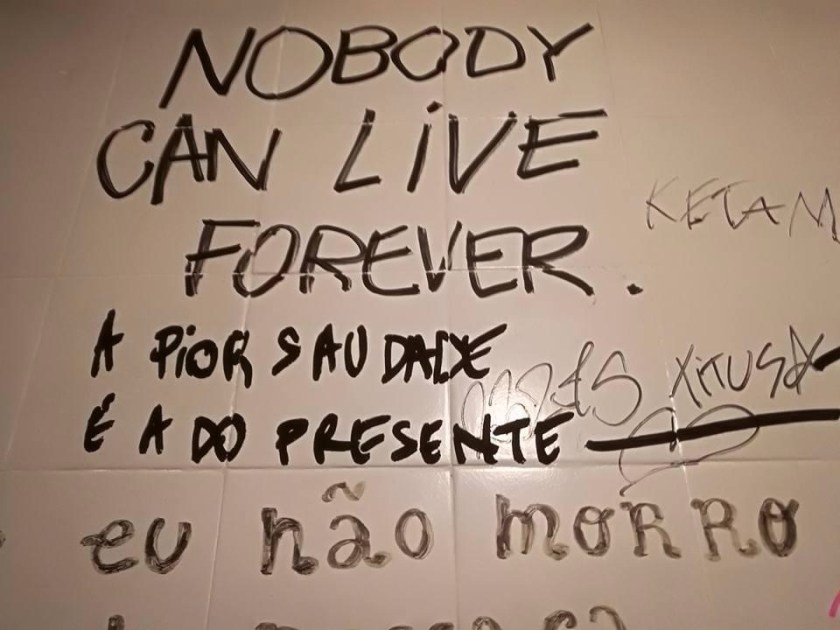 NOBODY
CAN LIVE
FOREVER.
KETAM
A PIOR SAUDADE
É A DO PRESENTE
eu não morro